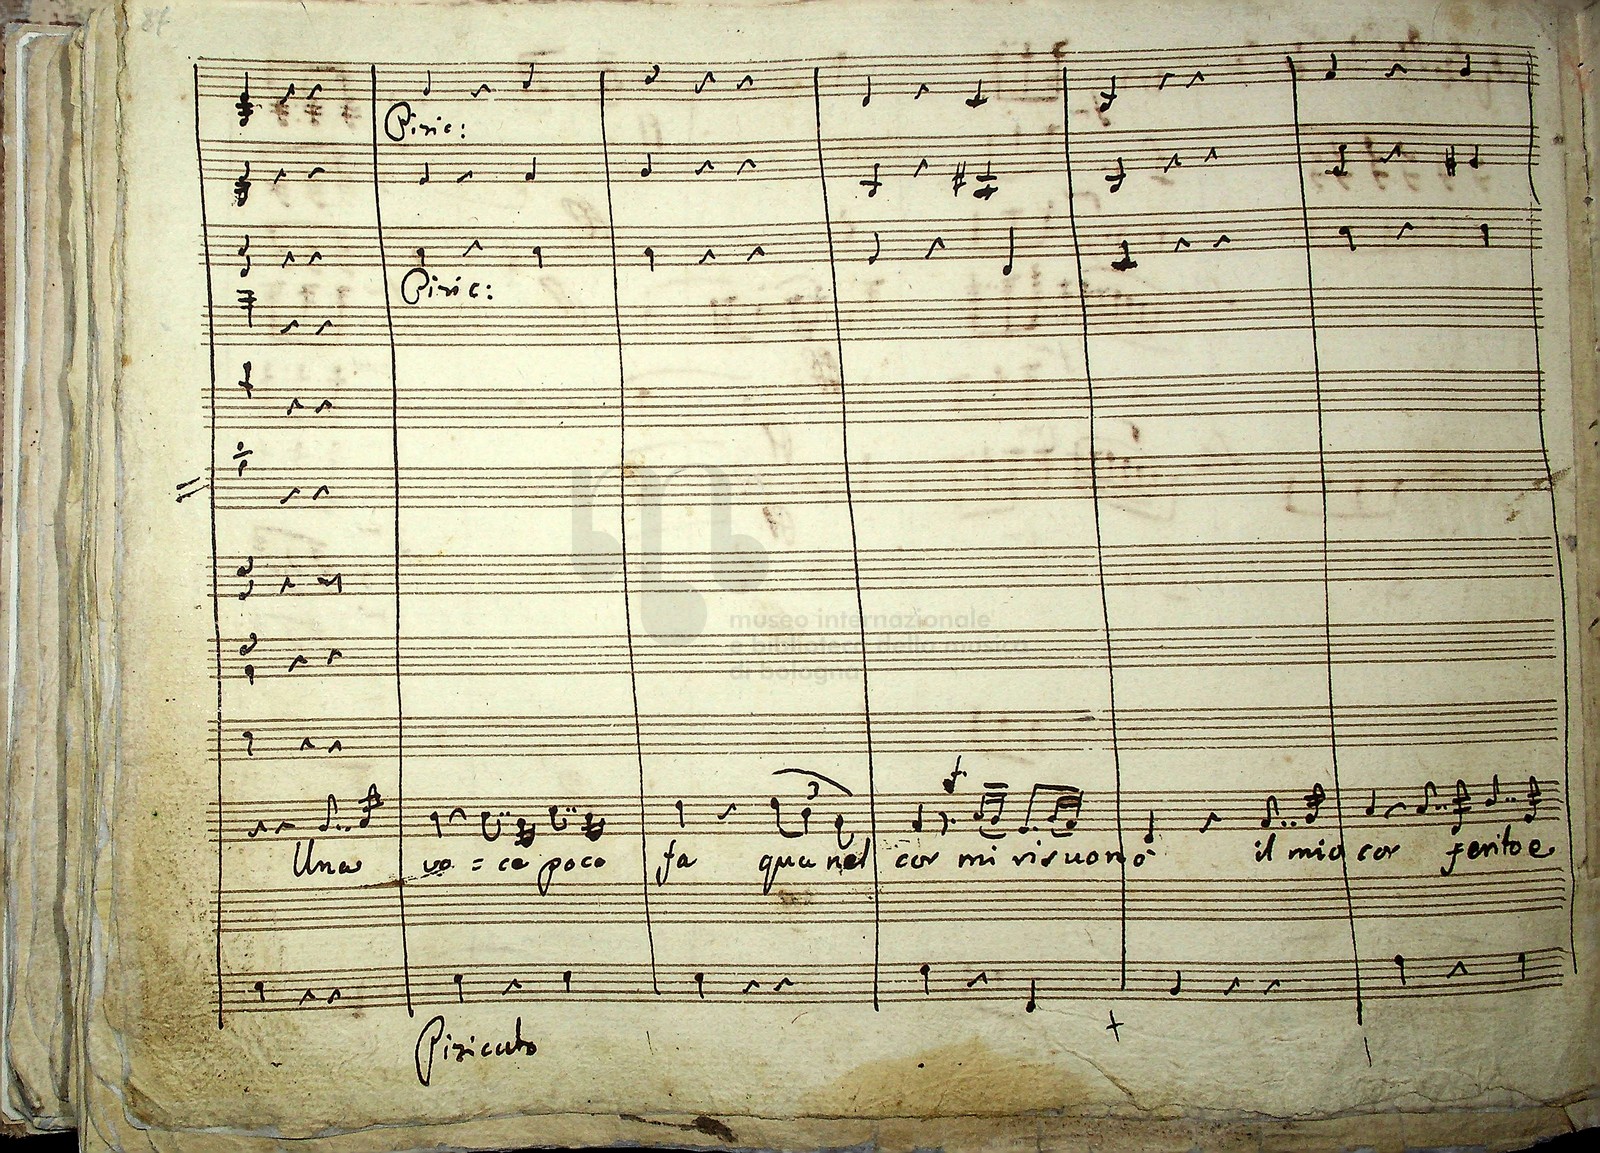 87
Pizic:
Pizic:
museo internazionale
e biblioteca della musica
di bologna
3
Una vo = ce poco fa qua nel cor mi risuonò il mio cor ferito e
Pizicato